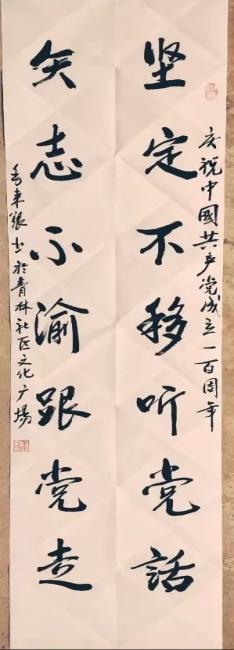 庆祝中國共产党成立一百周年
坚定不移听党话
矢志不渝跟党走
书於青林社区文化广場